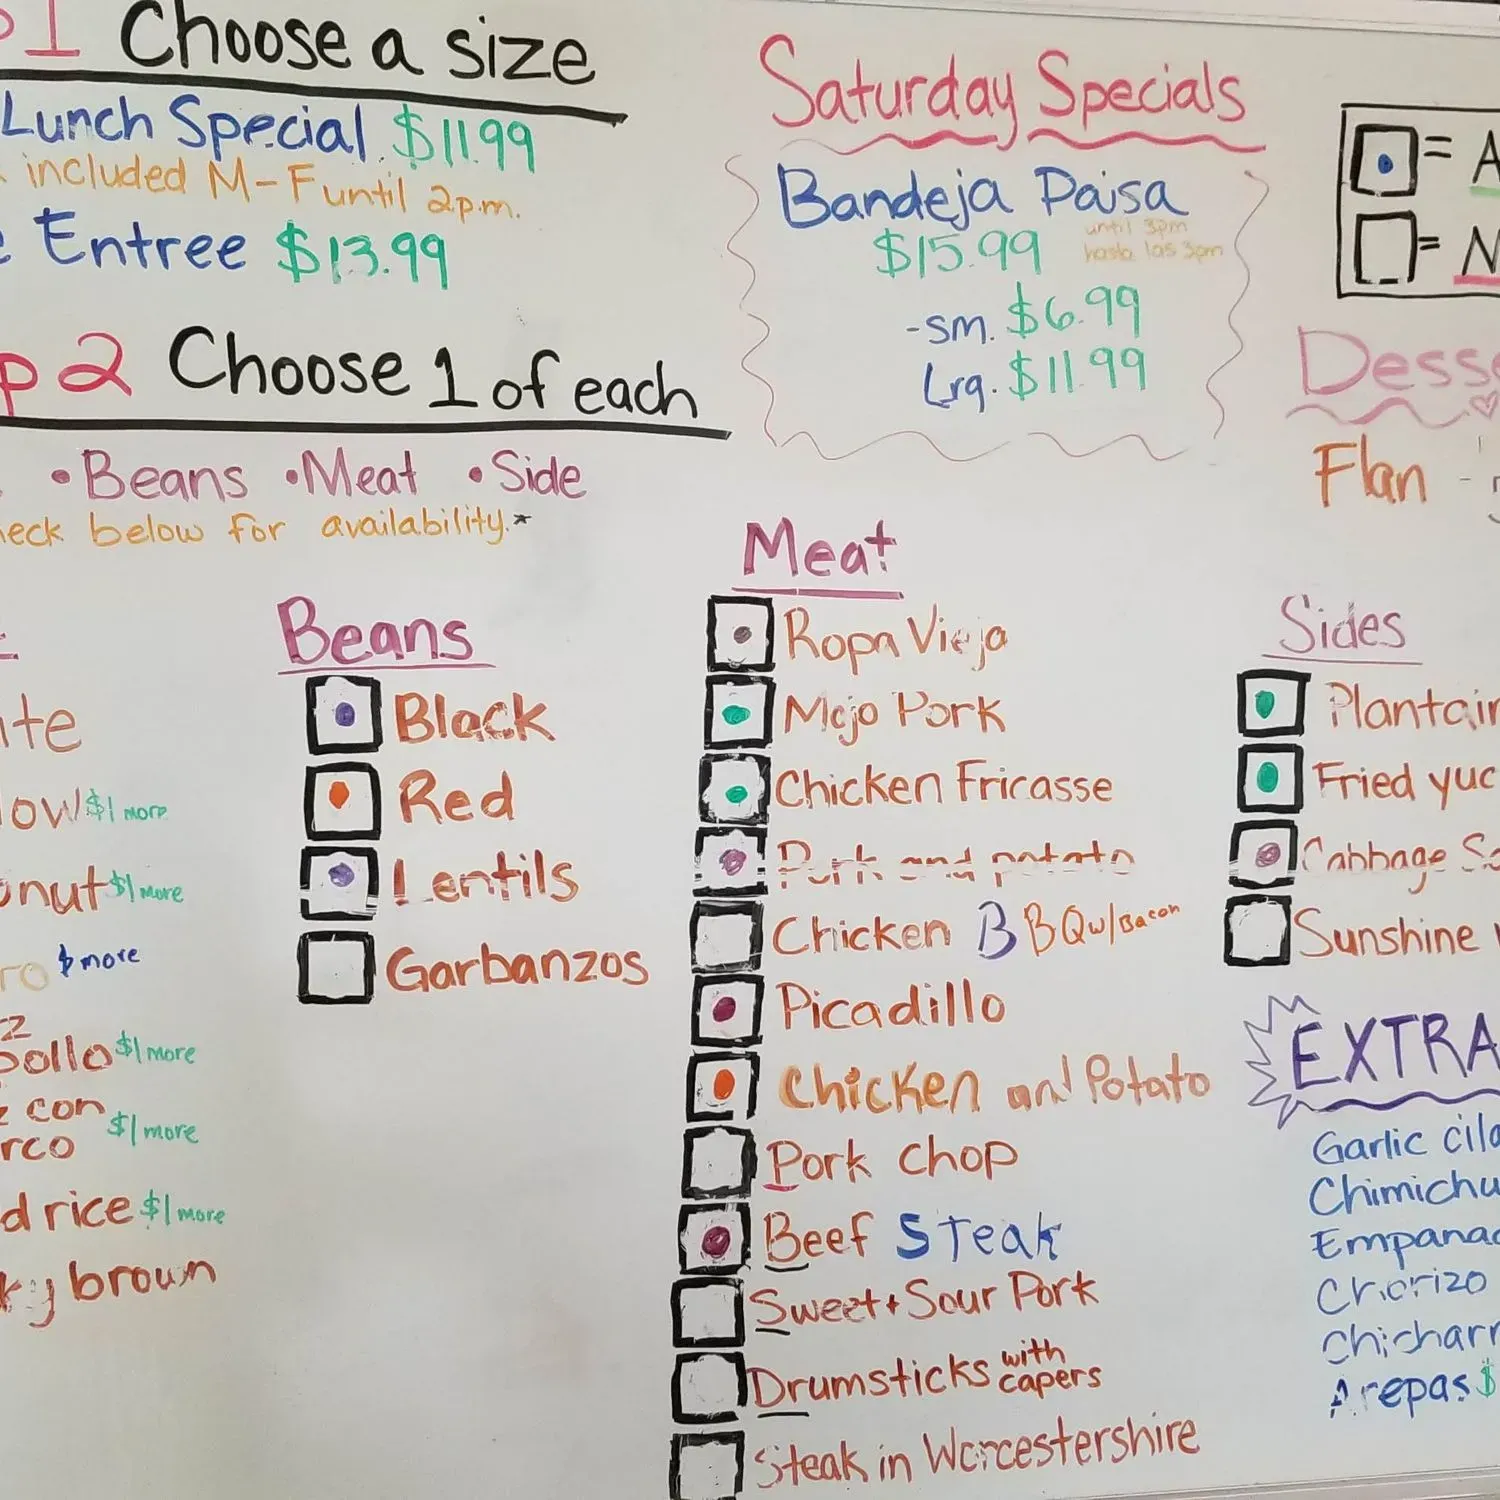 1 Choose a size
Lunch Special $11.99
included M-F until 2p.m.
Entree $13.99
p 2 Choose 1 of each
•Beans •Meat •Side
eck below for availability.*
Saturday Specials
Bandeja Paisa
$15.99
until 3pm
hasta las 3pm
-sm. $6.99
Lrg. $11.99
= A
= N
Desse
Flan -
ite
low $1 more
onut $1 more
ro $ more
z
pollo $1 more
z con
rco $1 more
d rice $1 more
ky brown
Beans
Black
Red
Lentils
Garbanzos
Meat
Ropa Vieja
Mojo Pork
Chicken Fricasse
Pork and potato
Chicken BBQ w/Bacon
Picadillo
Chicken and Potato
Pork chop
Beef Steak
Sweet + Sour Pork
Drumsticks with capers
Steak in Worcestershire
Sides
Plantain
Fried yuc
Cabbage Sa
Sunshine
EXTRA
Garlic cila
Chimichu
Empanad
Chorizo
Chicharr
Arepas $